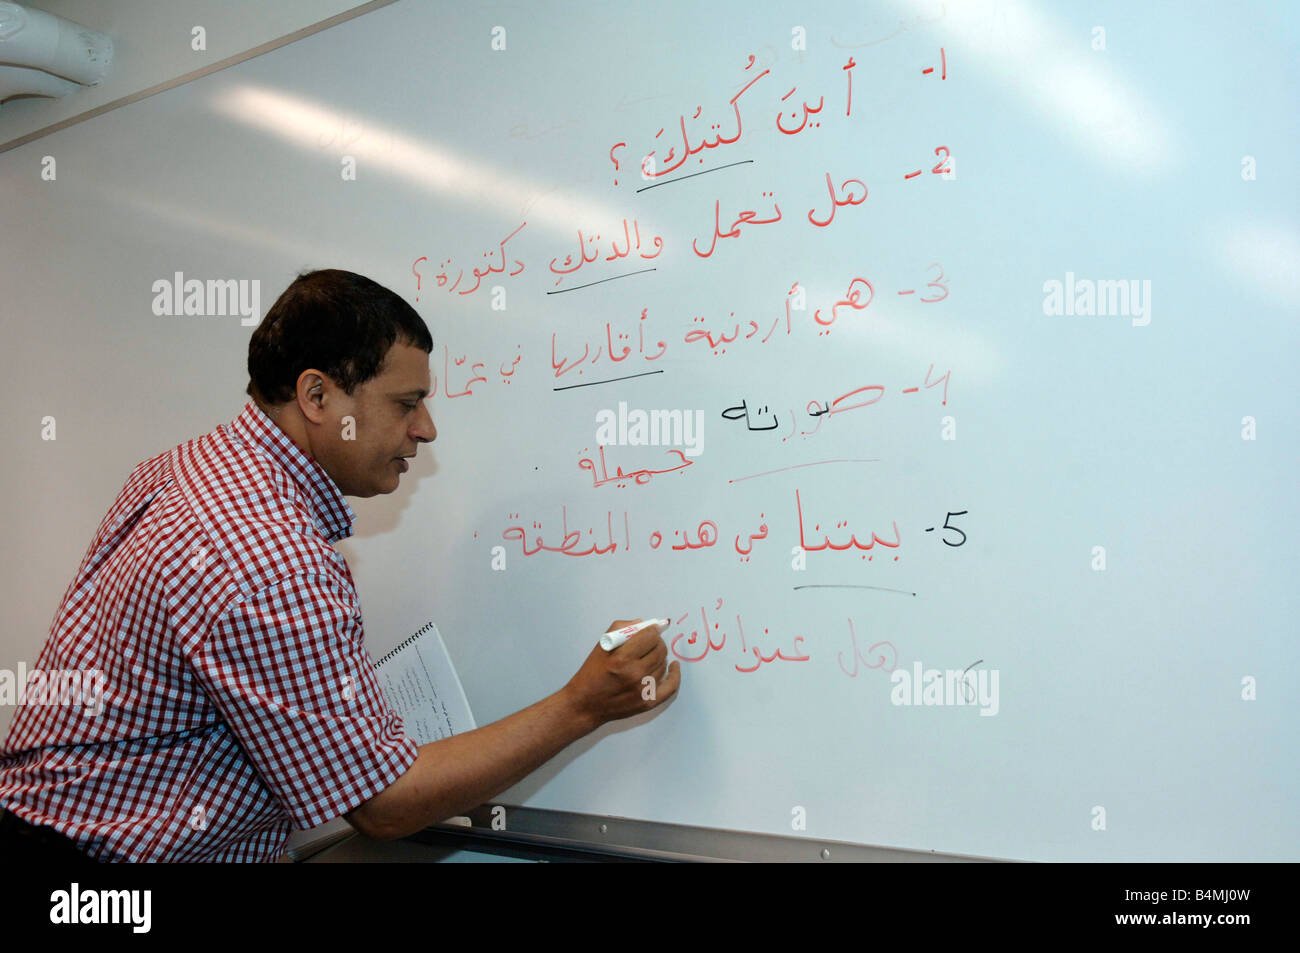 1- أينَ كُتبُكَ ؟
2- هل تعمل والدتكِ دكتورة ؟
3- هي أردنية وأقاربها في عمّان
4- صورته
جميلة
5- بيتنا في هذه المنطقة .
6- هل عنوانُكَ
alamy
B4MJ0W
www.alamy.com